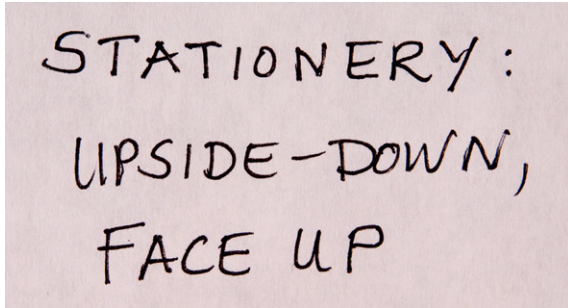 STATIONERY:
UPSIDE-DOWN,
FACE UP